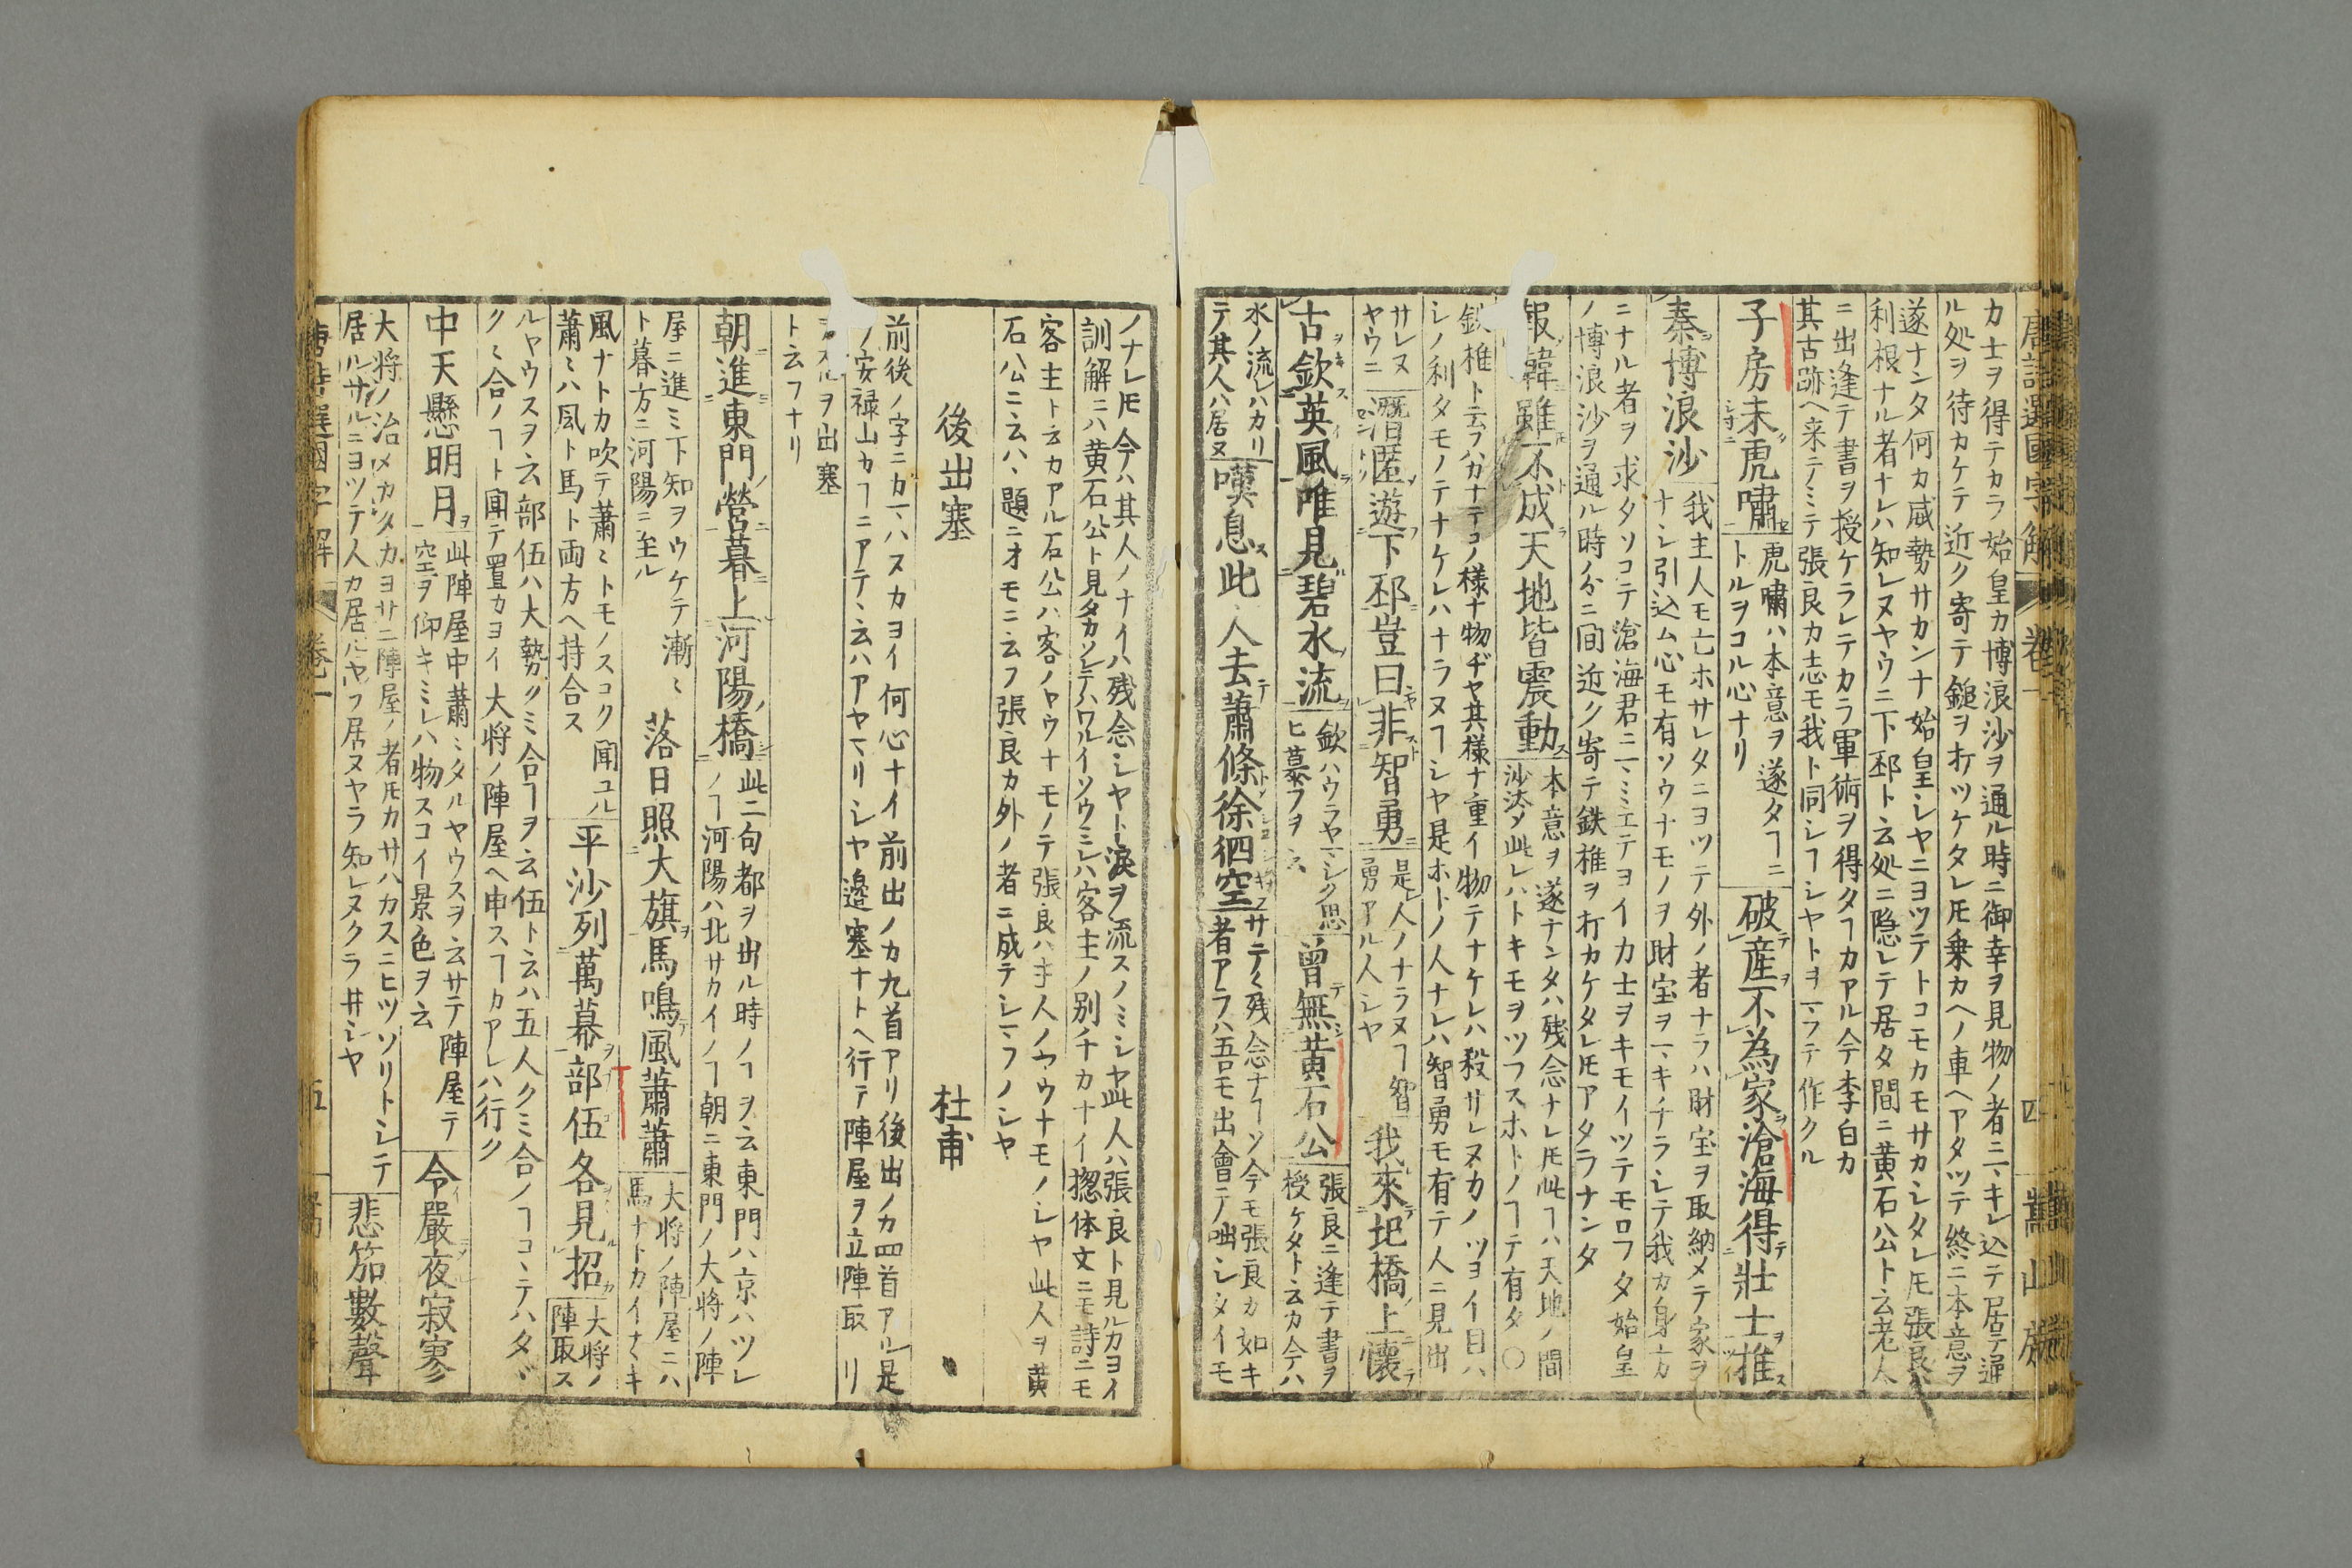 唐詩選國字解 卷一 四 嵩山房
カ士ヲ得テカラ始皇カ博浪沙ヲ通ル時ニ御幸ヲ見物ノ者ニヽキレ込テ居テ通
ル処ヲ待カケテ近ク寄テ鎚ヲ打ツケタレ𪜈乗カヘノ車ヘアタツテ終ニ本意ヲ
遂ナンタ何カ威勢サカンナ始皇シヤニヨツテトコモカモサカシタレ𪜈張良
利根ナル者ナレハ知レヌヤウニ下邳ト云処ニ隠レテ居タ間ニ黄石公ト云老人
ニ出逢テ書ヲ授ケラレテカラ軍術ヲ得タヿカアル今李白カ
其古跡ヘ来テミテ張良カ志モ我ト同シヿシヤトヲヽラテ作クル
子房未虎嘯
虎嘯ハ本意ヲ遂タヿニ
トルヲコル心ナリ
破産不為家滄海得壯士推
秦博浪沙
我主人モ亡ホサレタニヨツテ外ノ者ナラハ財宝ヲ取納メテ家ヲ
ナシ引込ム心モ有ソウナモノヲ財宝ヲヽキチラシテ我カ身方
ニナル者ヲ求タソコテ滄海君ニヽミエテヨイカ士ヲキモイツテモロフタ始皇
ノ博浪沙ヲ通ル時ノ分ニ間近ク寄テ鉄椎ヲ打カケタレ𪜈アタラナンタ
報韓雖不成天地皆震動
本意ヲ遂ナンタハ残念ナレ𪜈此ヿハ天地ノ間
沙汰タ此レハトキモヲツフスホトノヿテ有タ〇
鉄椎ト云フハカナテコノ様ナ物ヂヤ其様ナ重イ物テナケレハ殺サレヌカノツヨイ目ハ
シノ利タモノテナケレハナラヌヿシヤ是ホトノ人ナレハ智勇モ有テ人ニ見出
サレヌ
ヤウニ
潛匿遊下邳豈曰非智勇
是人ノナラヌヿ智
勇アル人シヤ
我來圯橋上懷
古欽英風唯見碧水流
欽ハウラヤマシク思
ヒ慕フヲ云
曾無黄石公
張良ニ逢テ書ヲ
授ケタト云カ今ハ
水ノ流レハカリ
テ其人ハ居ヌ
嘆息此人去蕭條徐泗空
サテ〱残念ナヿソ今モ張良カ如キ
者アラハ吾モ出會テ咄シタイモ
ノナレ𪜈今ハ其人ノナイハ残念シヤト涙ヲ流スノミシヤ此人ハ張良ト見ルカヨイ
訓解ニハ黄石公ト見タカソレテハワルイソウミレハ客主ノ別チカナイ揔体文ニモ詩ニモ
客主ト云カアル石公ハ客ノヤウナモノテ張良ハ主人ノヤウナモノシヤ此人ヲ黄
石公ニ云ハ、題ニオモニ云フ張良カ外ノ者ニ成テシマフノシヤ
後出塞 杜甫
前後ノ字ニカヽハスカヨイ何心ナイ前出ノカ九首アリ後出ノカ四首アル是
ノ安禄山カヿニアテヽ云ハアヤマリシヤ邉塞ナトヘ行テ陣屋ヲ立陣取リ
ヲ出塞
ト云フナリ
朝進東門營暮上河陽橋
此二句都ヲ出ル時ノヿヲ云東門ハ京ハツレ
ノヿ河陽ハ北サカイノヿ朝ニ東門ノ大将ノ陣
屋ニ進ミ下知ヲウケテ漸〻
ト暮方ニ河陽ニ至ル
落日照大旗馬鳴風蕭蕭
大将ノ陣屋ニハ
馬ナトカイナヽキ
風ナトカ吹テ蕭〻トモノスコク聞ユル
蕭〻ハ風ト馬ト両方ヘ持合ス
平沙列萬幕部伍各見招
大将ノ
陣取ス
ルヤウスヲ云部伍ハ大勢クミ合ヿヲ云伍ト云ハ五人クミ合ノヿコヽテハタヾ
クミ合ノヿト聞テ置カヨイ大将ノ陣屋ヘ申スヿカアレハ行ク
中天懸明月
此陣屋中蕭〻タルヤウスヲ云サテ陣屋テ
空ヲ仰キミレハ物スコイ景色ヲ云
令嚴夜寂寥
大将ノ治メカタカヨサニ陣屋ノ者𪜈カサハカスニヒツソリトシテ
居ルサルニヨツテ人カ居ルヤラ居ヌヤラ知レヌクラ井シヤ
悲笳數聲
唐詩選國字解 卷一 五